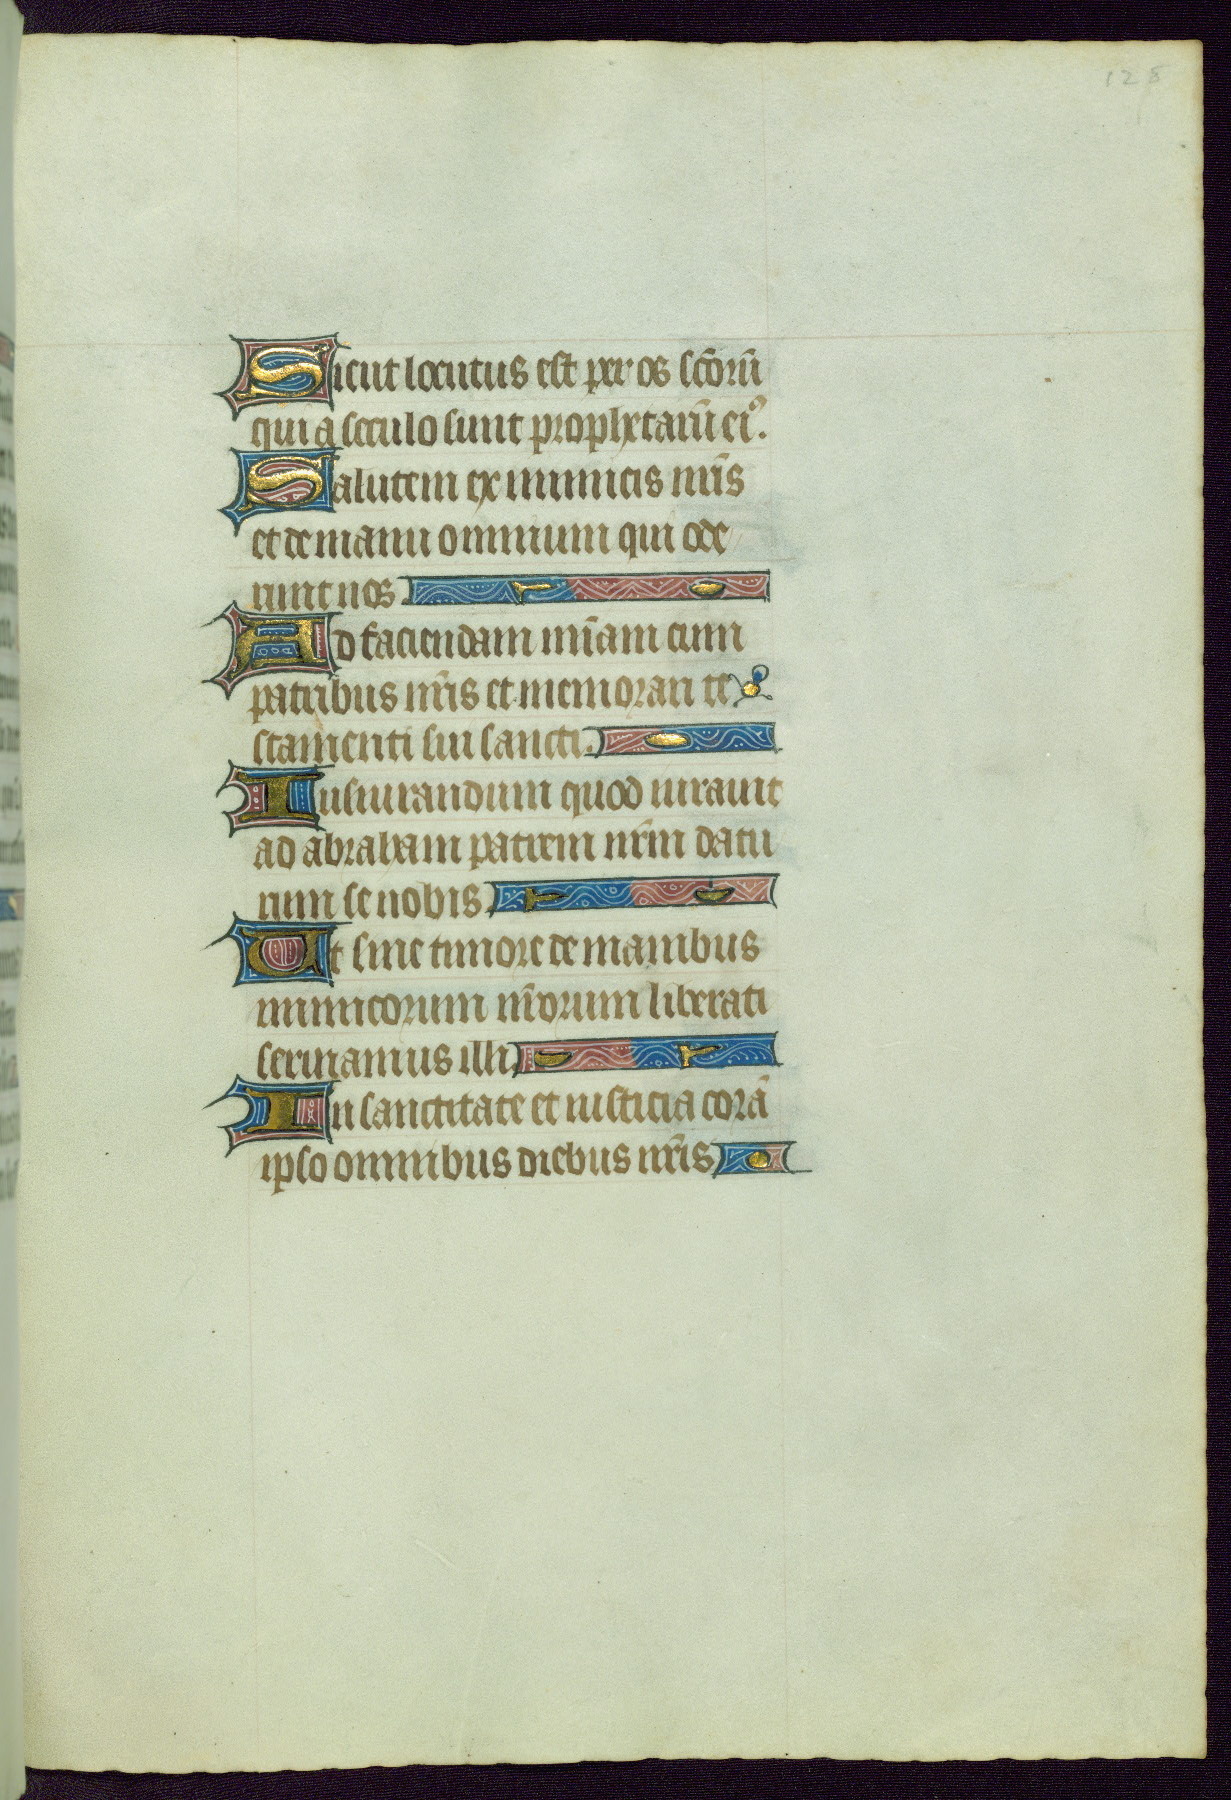 128
Sicut locutus est per os sc̄orū
qui a seculo sunt prophetarū ei⁹.
Salutem ex inimicis nr̄is
et de manu omnium qui ode
runt nos.
Ad faciendam mīam cum
patribus nr̄is et memorari te
stamenti sui sancti.
Iusiurandum quod iurauit
ad abraham patrem nr̄m datu
rum se nobis.
Ut sine timore de manibus
inimicorum nr̄orum liberati
seruiamus illi.
In sanctitate et iusticia corā
ipso omnibus diebus nr̄is